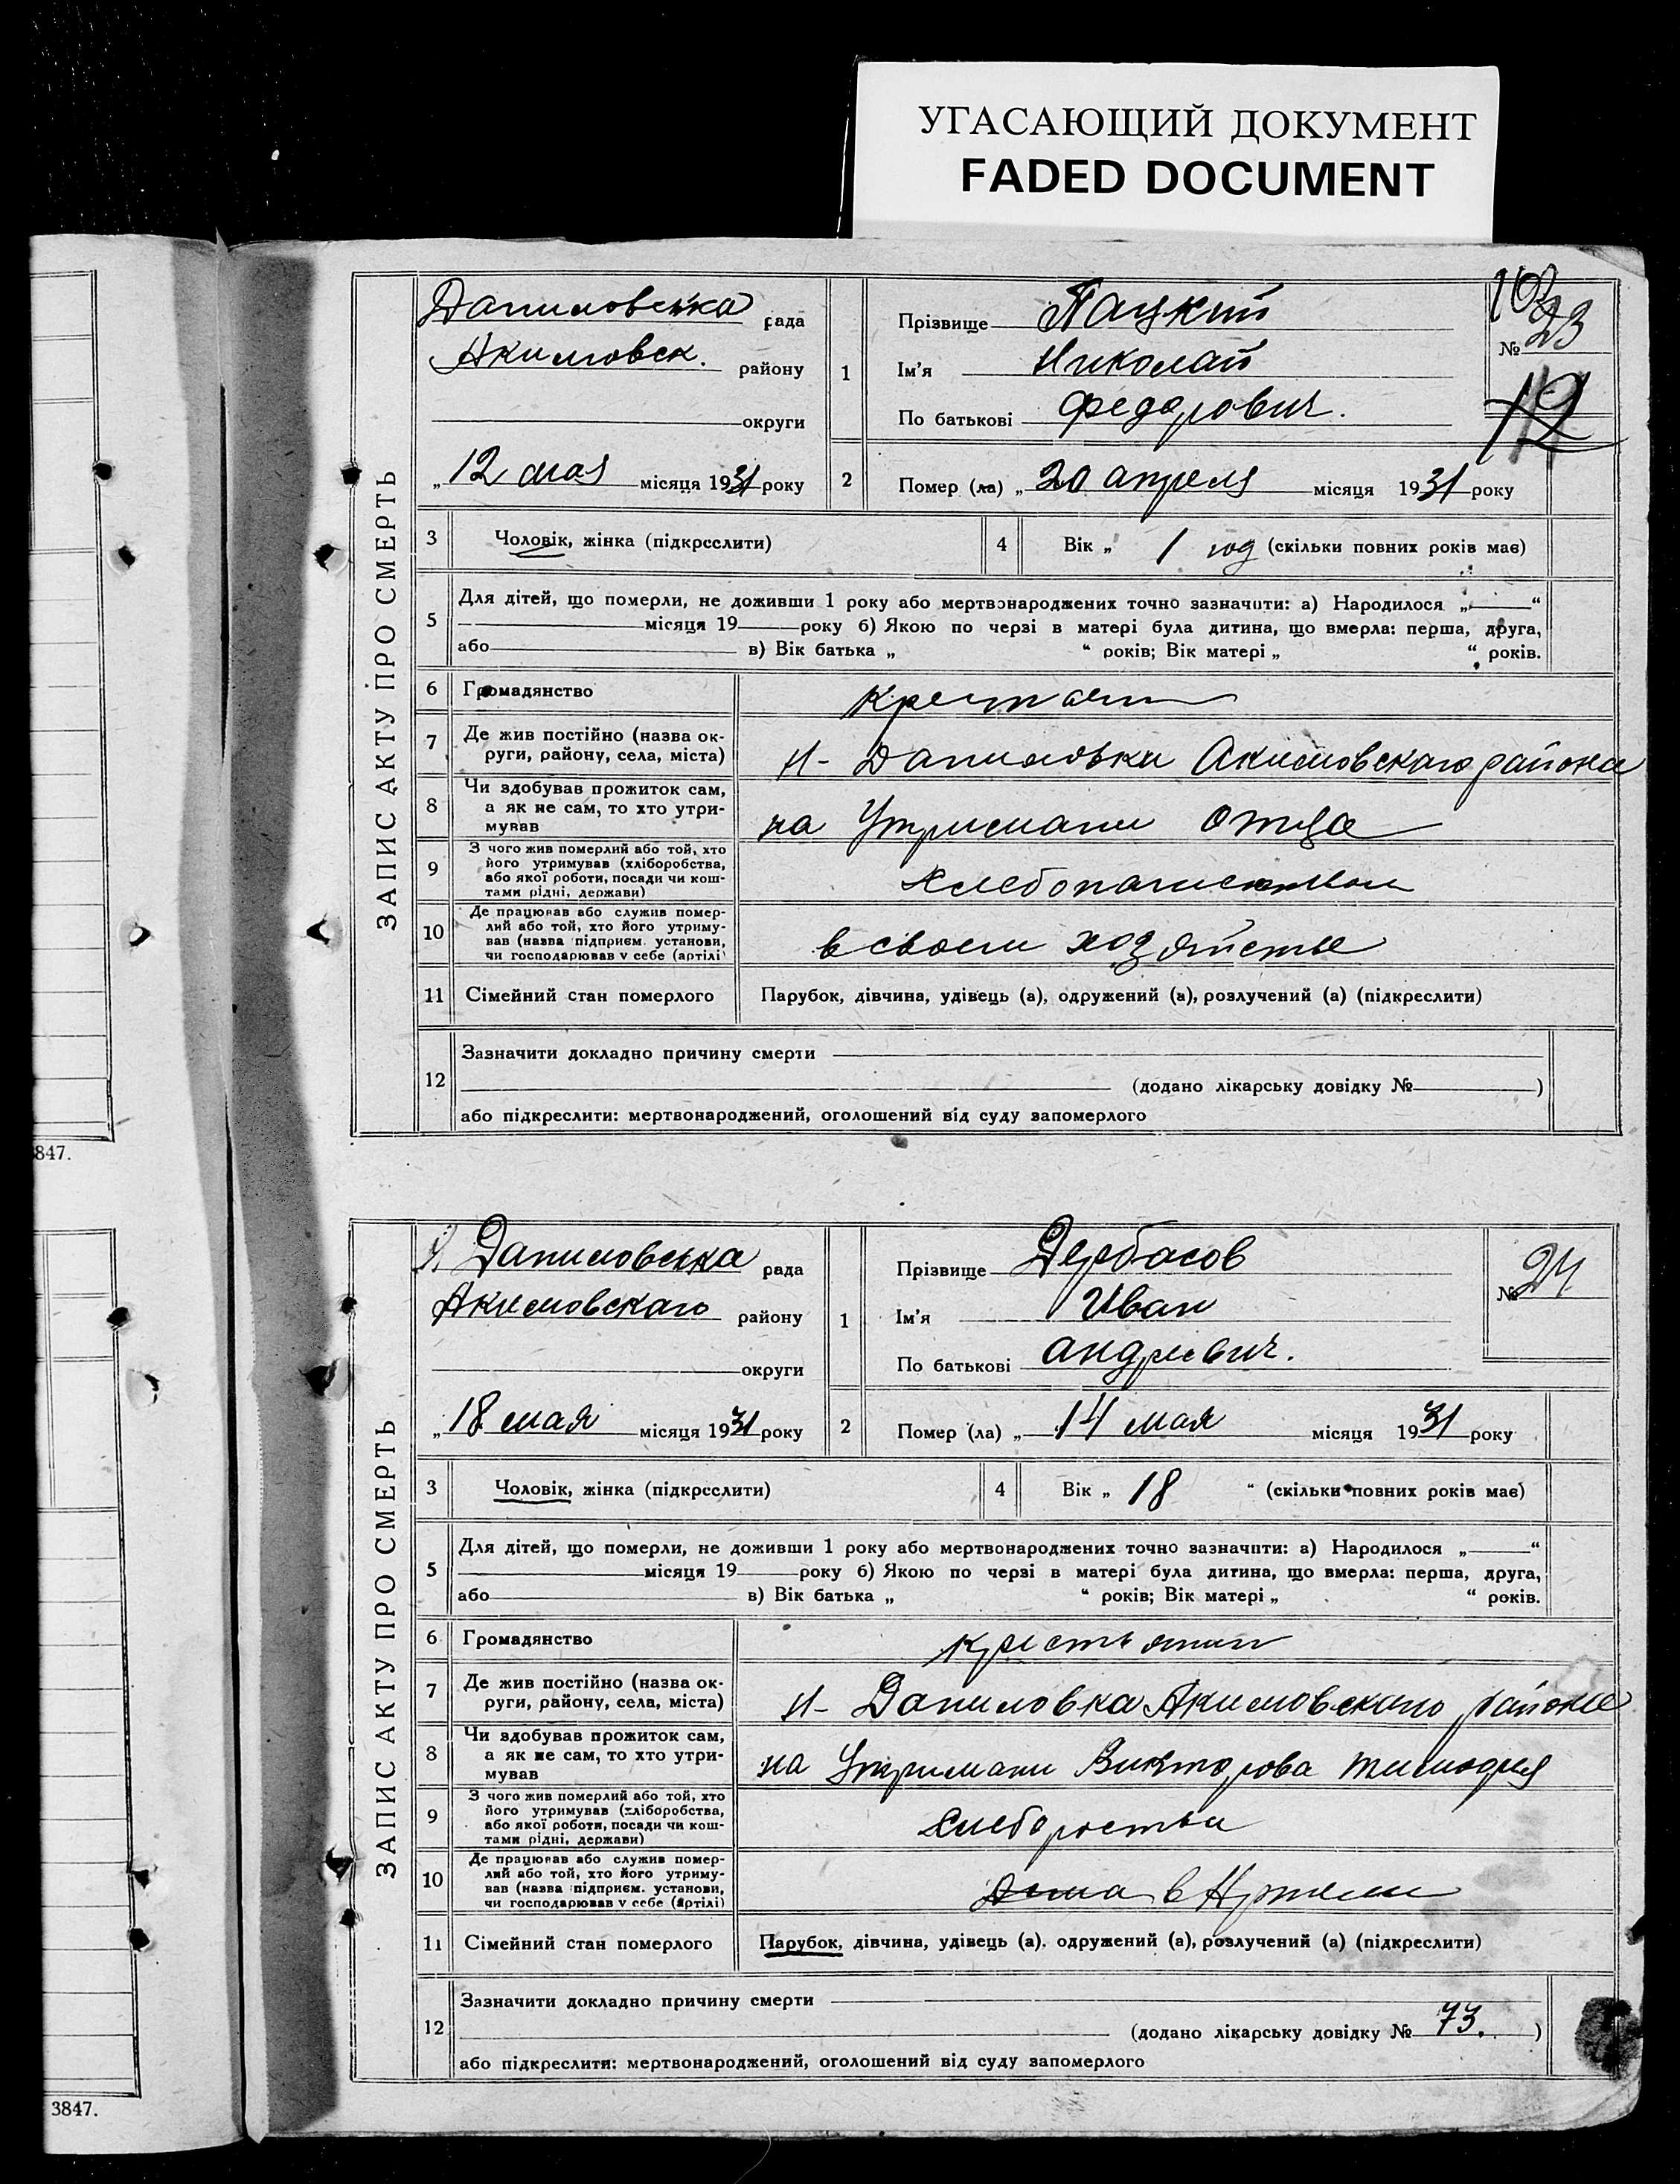 УГАСАЮЩИЙ ДОКУМЕНТ
FADED DOCUMENT
ЗАПИС АКТУ ПРО СМЕРТЬ
Даниловська рада
Акимовск. району
округи
„12 мая місяця 1931 року
1
Прізвище Пацкий
Ім'я Николай
По батькові Федорович.
№ 23
12
2
Помер (ла) „ 20 апреля місяця 1931 року
3 Чоловік, жінка (підкреслити)
4 Вік „ 1 год (скільки повних років має)
5 Для дітей, що померли, не доживши 1 року або мертвонароджених точно зазначити: а) Народилося „ “
місяця 19 року б) Якою по черзі в матері була дитина, що вмерла: перша, друга,
або в) Вік батька „ “ років; Вік матері „ “ років.
6 Громадянство
7 Де жив постійно (назва ок-
руги, району, села, міста) Н- Даниловки Акимовского района
8 Чи здобував прожиток сам,
а як не сам, то хто утри-
мував на Утримани отца
9 З чого жив померлий або той, хто
його утримував (хліборобства,
або якої роботи, посади чи кош-
тами рідні, держави)
10 Де працював або служив помер-
лий або той, хто його утриму-
вав (назва підприєм. установи,
чи господарював у себе (артілі) в своем хозяйстве
11 Сімейний стан померлого Парубок, дівчина, удівець (а), одружений (а), розлучений (а) (підкреслити)
12 Зазначити докладно причину смерти
(додано лікарську довідку № )
або підкреслити: мертвонароджений, оголошений від суду запомерлого
847.
ЗАПИС АКТУ ПРО СМЕРТЬ
Даниловська рада
Акимовского району
округи
„18 мая місяця 1931 року
1
Прізвище Дербасов
Ім'я Иван
По батькові Андреевич.
№ 24
2
Помер (ла) „ 14 мая місяця 1931 року
3 Чоловік, жінка (підкреслити)
4 Вік „ 18 “ (скільки повних років має)
5 Для дітей, що померли, не доживши 1 року або мертвонароджених точно зазначити: а) Народилося „ “
місяця 19 року б) Якою по черзі в матері була дитина, що вмерла: перша, друга,
або в) Вік батька „ “ років; Вік матері „ “ років.
6 Громадянство крестьянин
7 Де жив постійно (назва ок-
руги, району, села, міста) Н- Даниловка Акимовского района
8 Чи здобував прожиток сам,
а як не сам, то хто утри-
мував на Утримани Викторова Тимофея
9 З чого жив померлий або той, хто
його утримував (хліборобства,
або якої роботи, посади чи кош-
тами рідні, держави)
10 Де працював або служив помер-
лий або той, хто його утриму-
вав (назва підприєм. установи,
чи господарював у себе (артілі) в Артели
11 Сімейний стан померлого Парубок, дівчина, удівець (а), одружений (а), розлучений (а) (підкреслити)
12 Зазначити докладно причину смерти
(додано лікарську довідку № 73. )
або підкреслити: мертвонароджений, оголошений від суду запомерлого
3847.